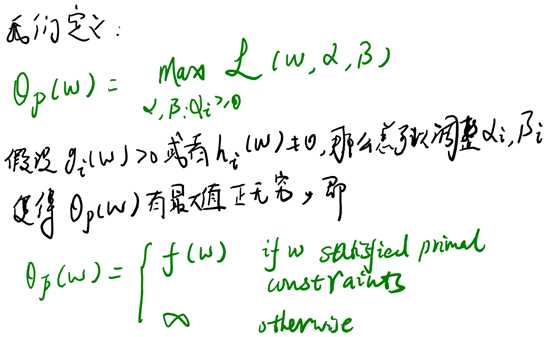 我们定义:
θₚ(w) = max L(w, α, β)
α, β: αᵢ ≥ 0
假设 gᵢ(w) > 0 或者 hᵢ(w) ≠ 0, 那么总可以调整 αᵢ, βᵢ
使得 θₚ(w) 有最大值正无穷, 即
θₚ(w) = { f(w) if w satisfied primal
constraints
∞ otherwise